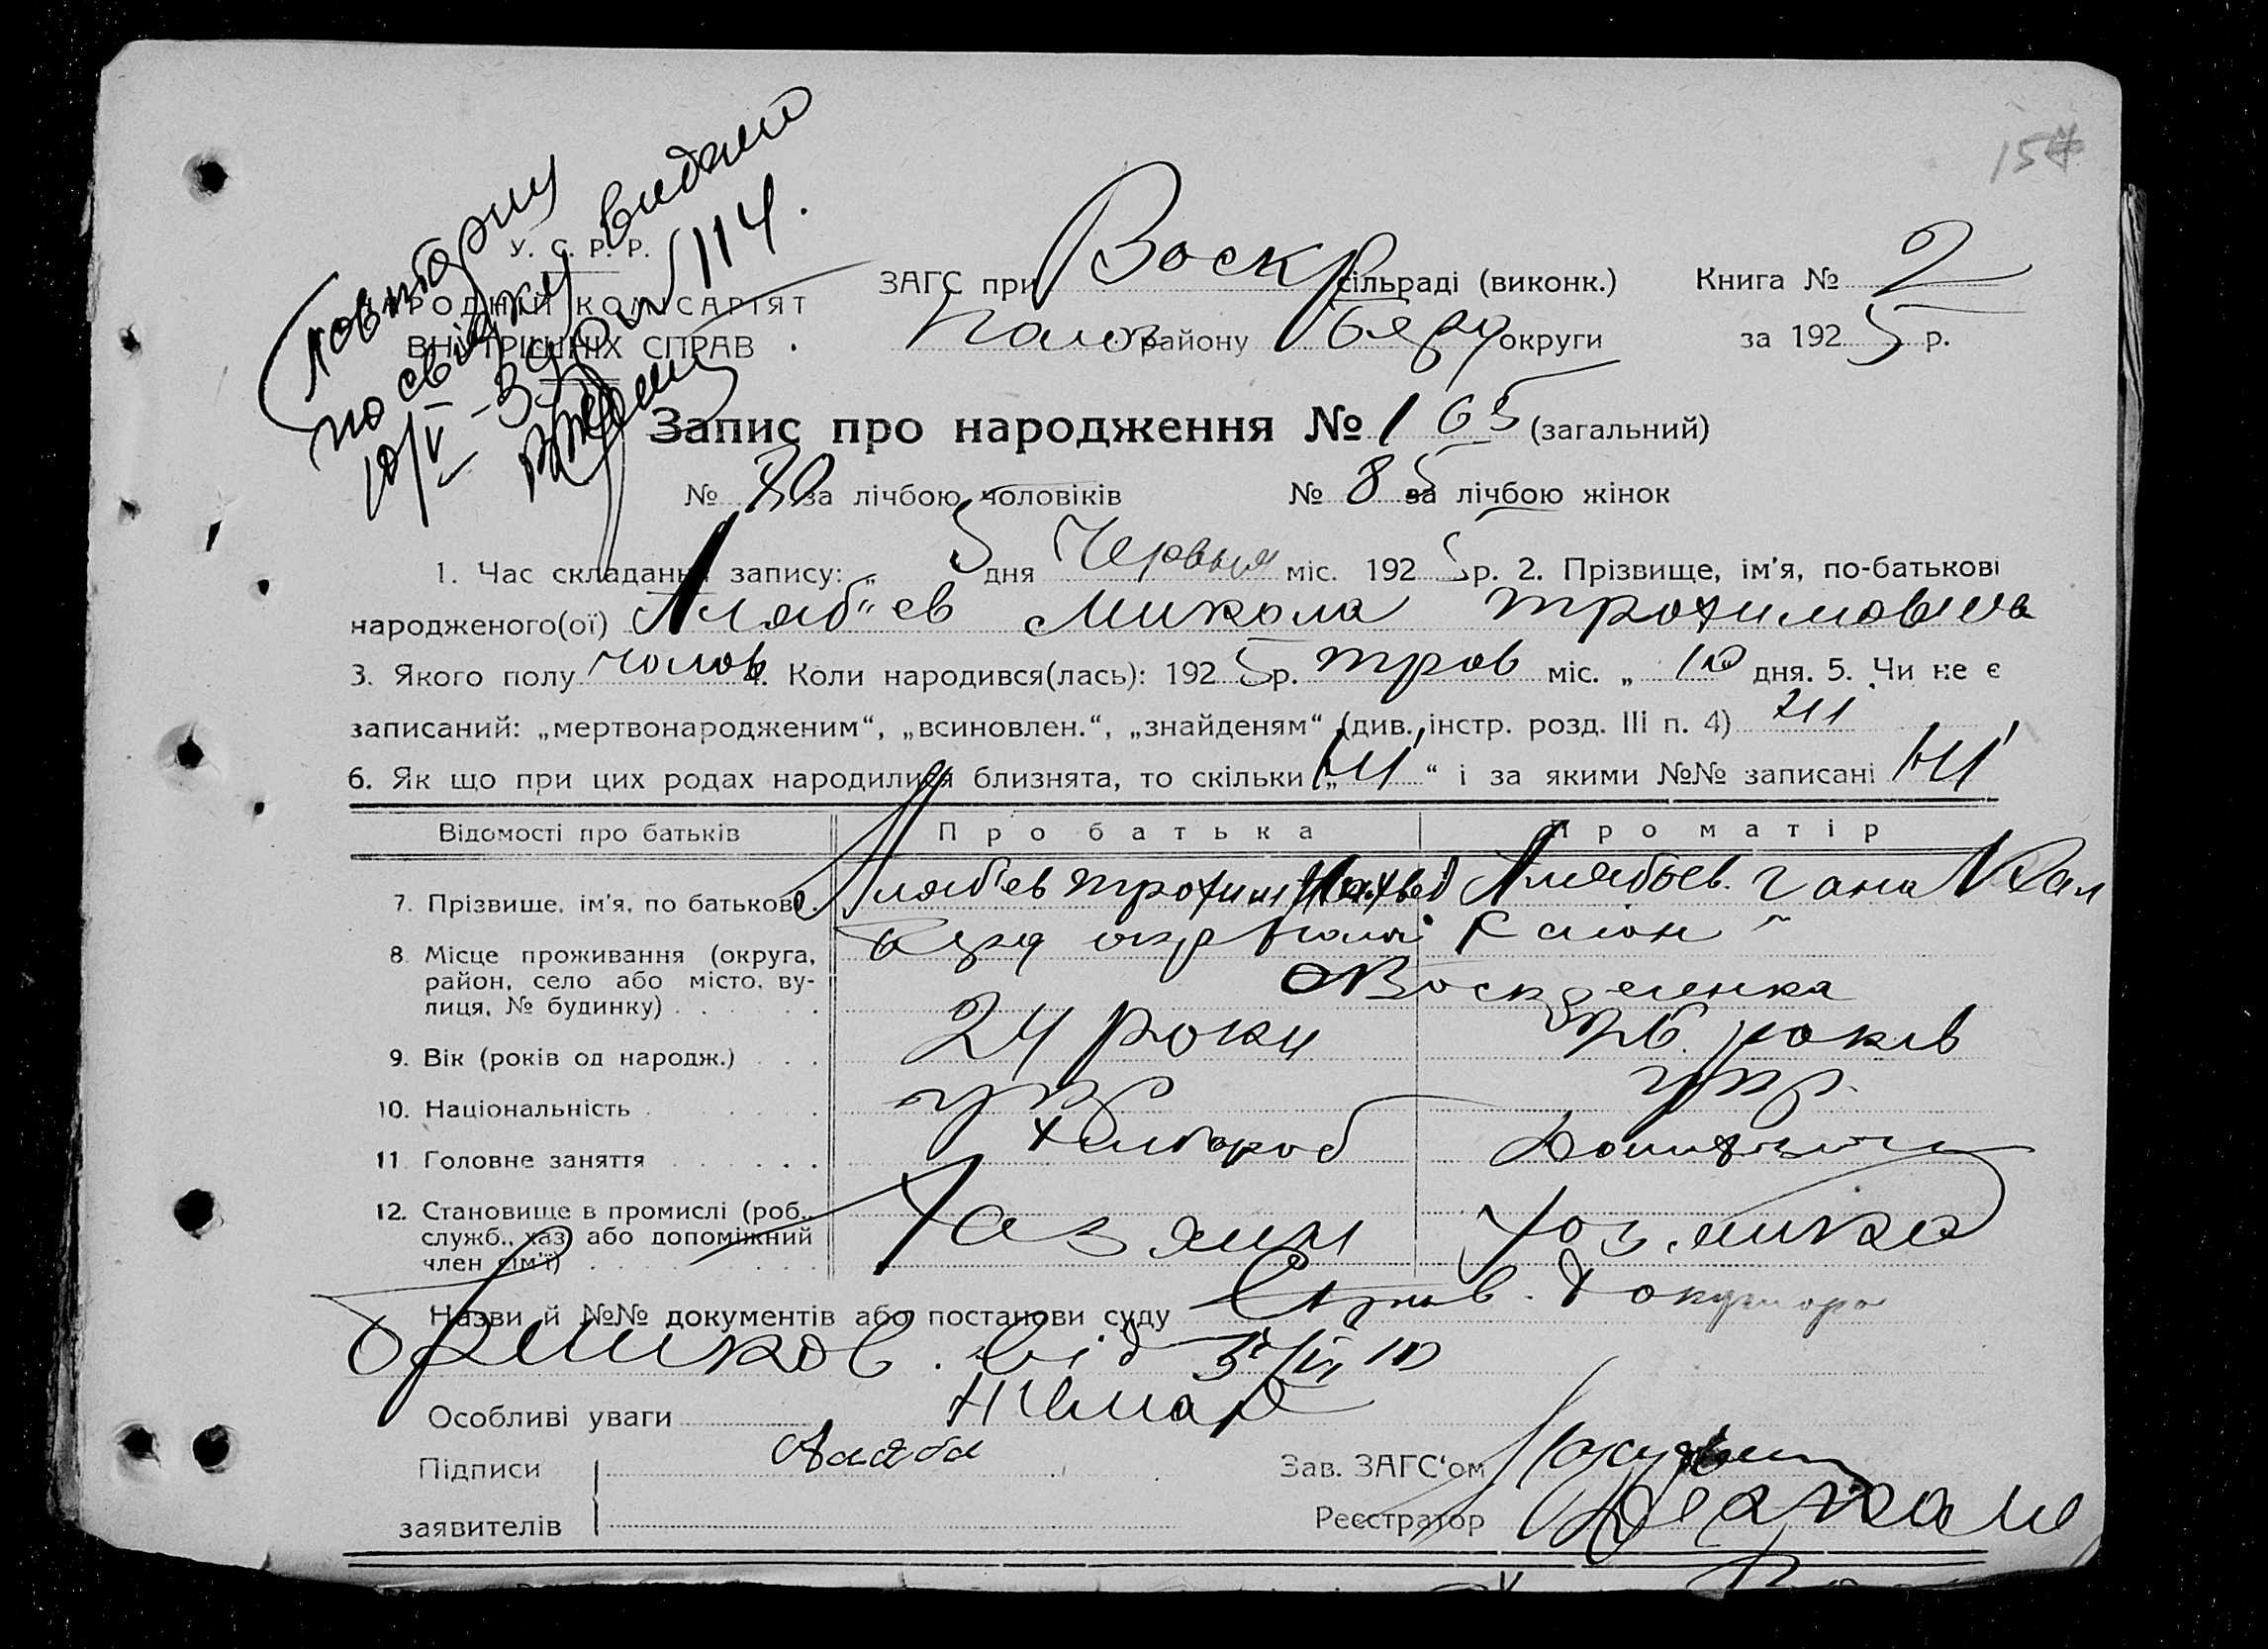 157
Повторну
посвідку видано
10/V-39 р. № 114.
У. С. Р. Р.
НАРОДНИЙ КОМІСАРІЯТ
ВНУТРІШНІХ СПРАВ
ЗАГС при Воскр сільраді (виконк.) Книга № 2
району округи за 1925 р.
Запис про народження № 165 (загальний)
№ 80 за лічбою чоловіків № 85 за лічбою жінок
1. Час складання запису: „ 5 дня Червня міс. 1925 р. 2. Прізвище, ім'я, по-батькові
народженого(ої) Аляб"ев Микола Трохимович
3. Якого полу чолов 4. Коли народився(лась): 1925 р. трав міс. „ 10 дня. 5. Чи не є
записаний: „мертвонародженим“, „всиновлен.“, „знайденям“ (див. інстр. розд. III п. 4) ні
6. Як що при цих родах народилися близнята, то скільки „ ні “ і за якими №№ записані ні
Відомості про батьків Про батька Про матір
7. Прізвище, ім'я, по батькові . Аляб'ев Трохим Алябьев. Гана
8. Місце проживання (округа, район
район, село або місто, ву- Воскресенка
лиця, № будинку) . . . . .
9. Вік (років од народж.) . . . 24 роки 26 років
10. Національність . . . . укр укр.
11. Головне заняття . . . . . . хлібороб
12. Становище в промислі (роб., хазяин хоз.яйка
служб., хаз. або допоміжний
член сім'ї) . . . . . .
Назви й №№ документів або постанови суду
від 5/VI
Особливі уваги немає
Підписи Зав. ЗАГС‘ом
заявителів Реєстратор